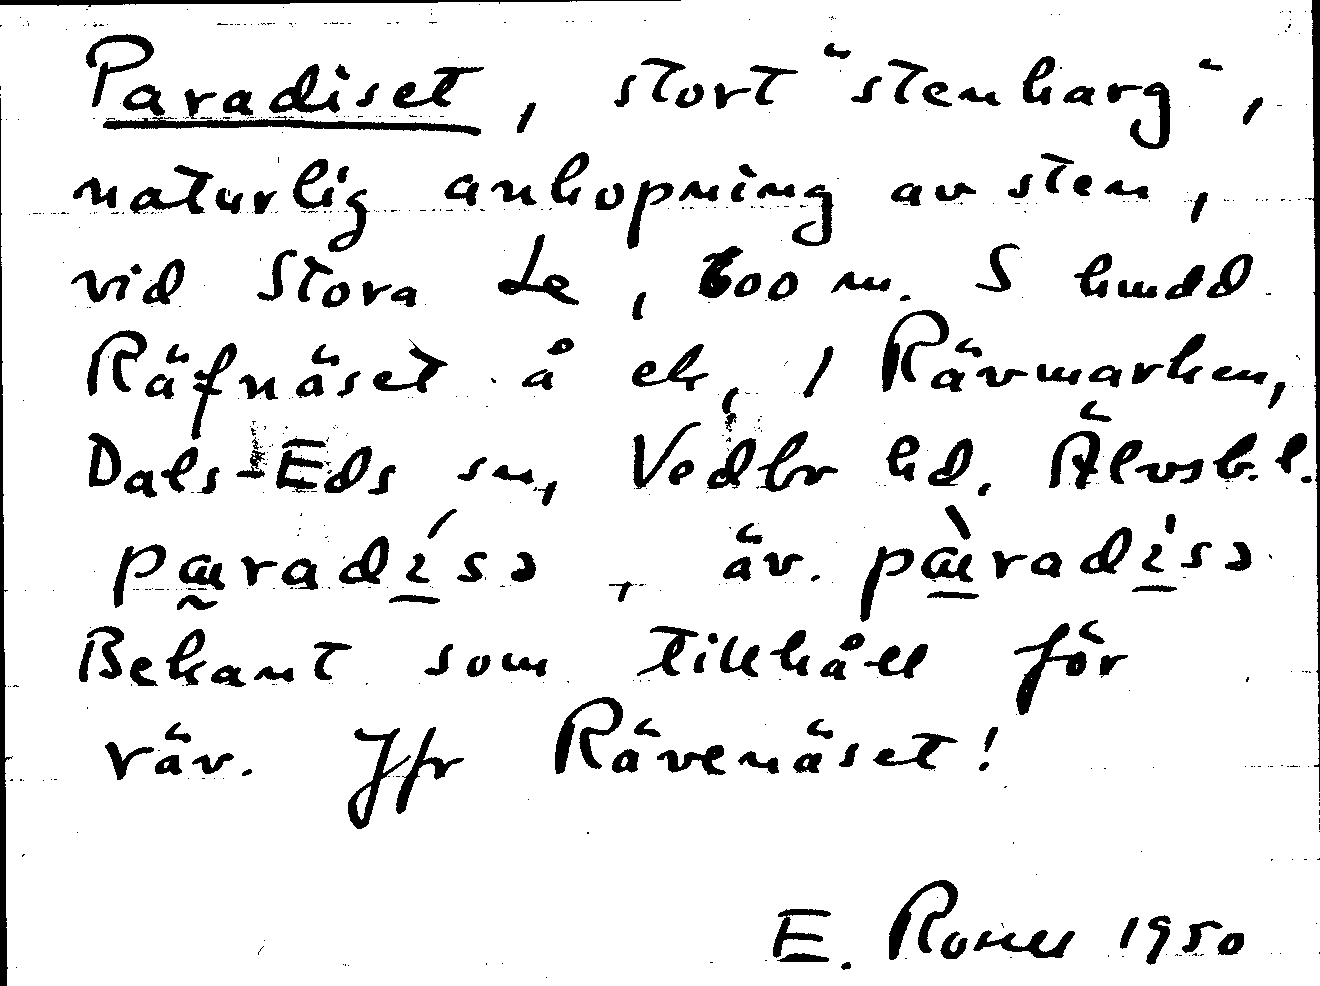 Paradiset, stort "stenharg",
naturlig anhopning av sten,
vid Stora Le, 600 m. S huvdd
Räfnäset å ek, 1 Rävmarken,
Dals-Eds sn, Vedbr hd. Älvsb. l.
pæradísɔ, äv. pæ̀radi'sɔ
Bekant som tillhåll för
räv. Jfr Rävenäset!
E. Rosell 1950